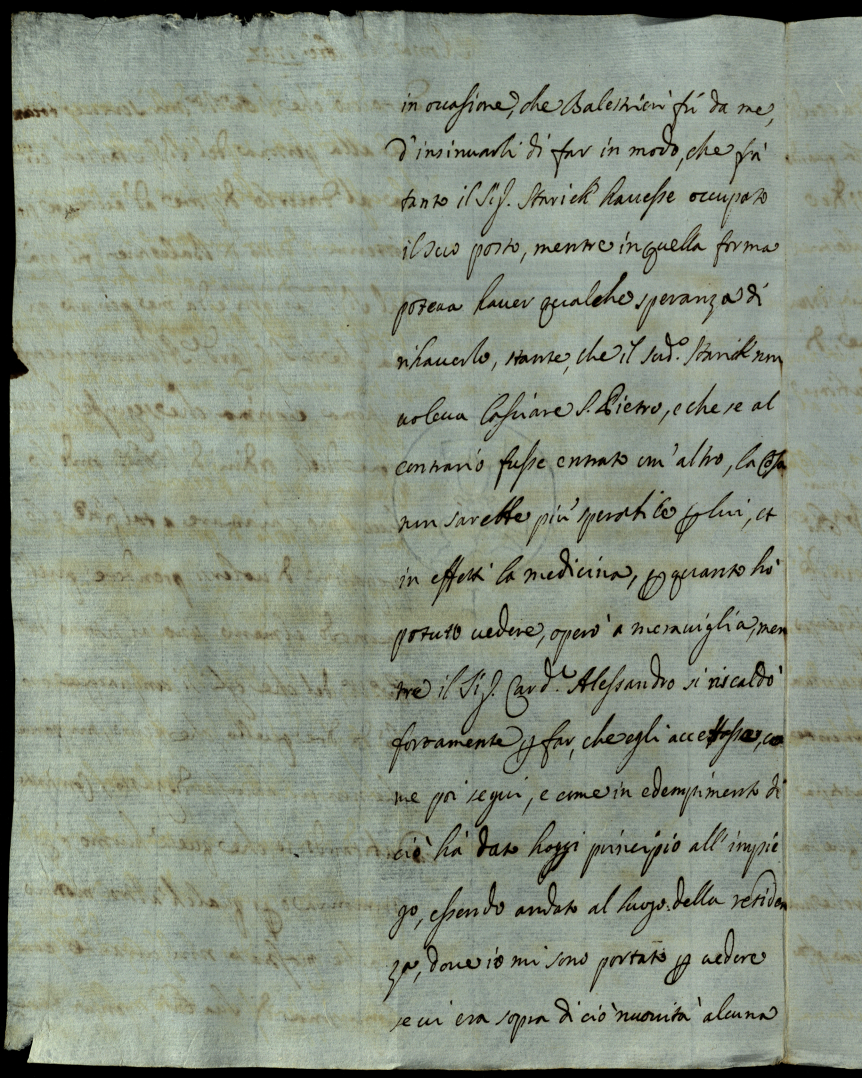 in occasione, che Balestrieri fù da me,
d'insinuarli di far in modo, che frà
tanto il Sig. Starick hauesse occupato
il suo posto, mentre in quella forma
poteua hauer qualche speranza di
rihauerlo, stante, che il sud.º Starick non
uoleua lasciare S. Pietro, e che se al
contrario fusse entrato un'altro, la cosa
non sarebbe più sperabile p lui, et
in effetti la medicina, p quanto hò
potuto uedere, operò a merauiglia, men
tre il Sig. Card.l Alessandro si riscaldò
fortamente p far, che egli accettasse, co
me poi seguì, e come in edempimento di
ciò hà dato hoggi principio all'impie
go, essendo andato al luogo della residen
za, doue io mi sono portato p uedere
se ui era sopra di ciò nuouità alcuna